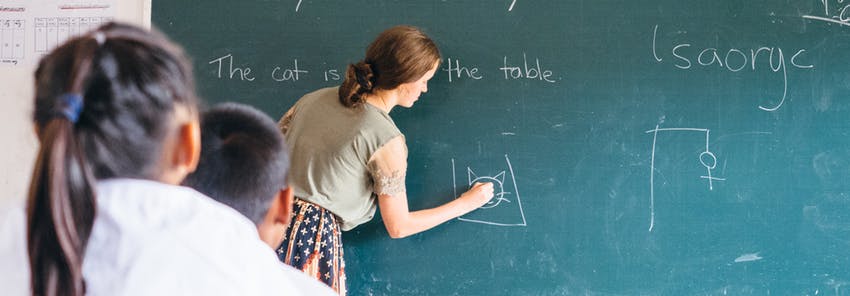 The cat is the table.
lsaoryc